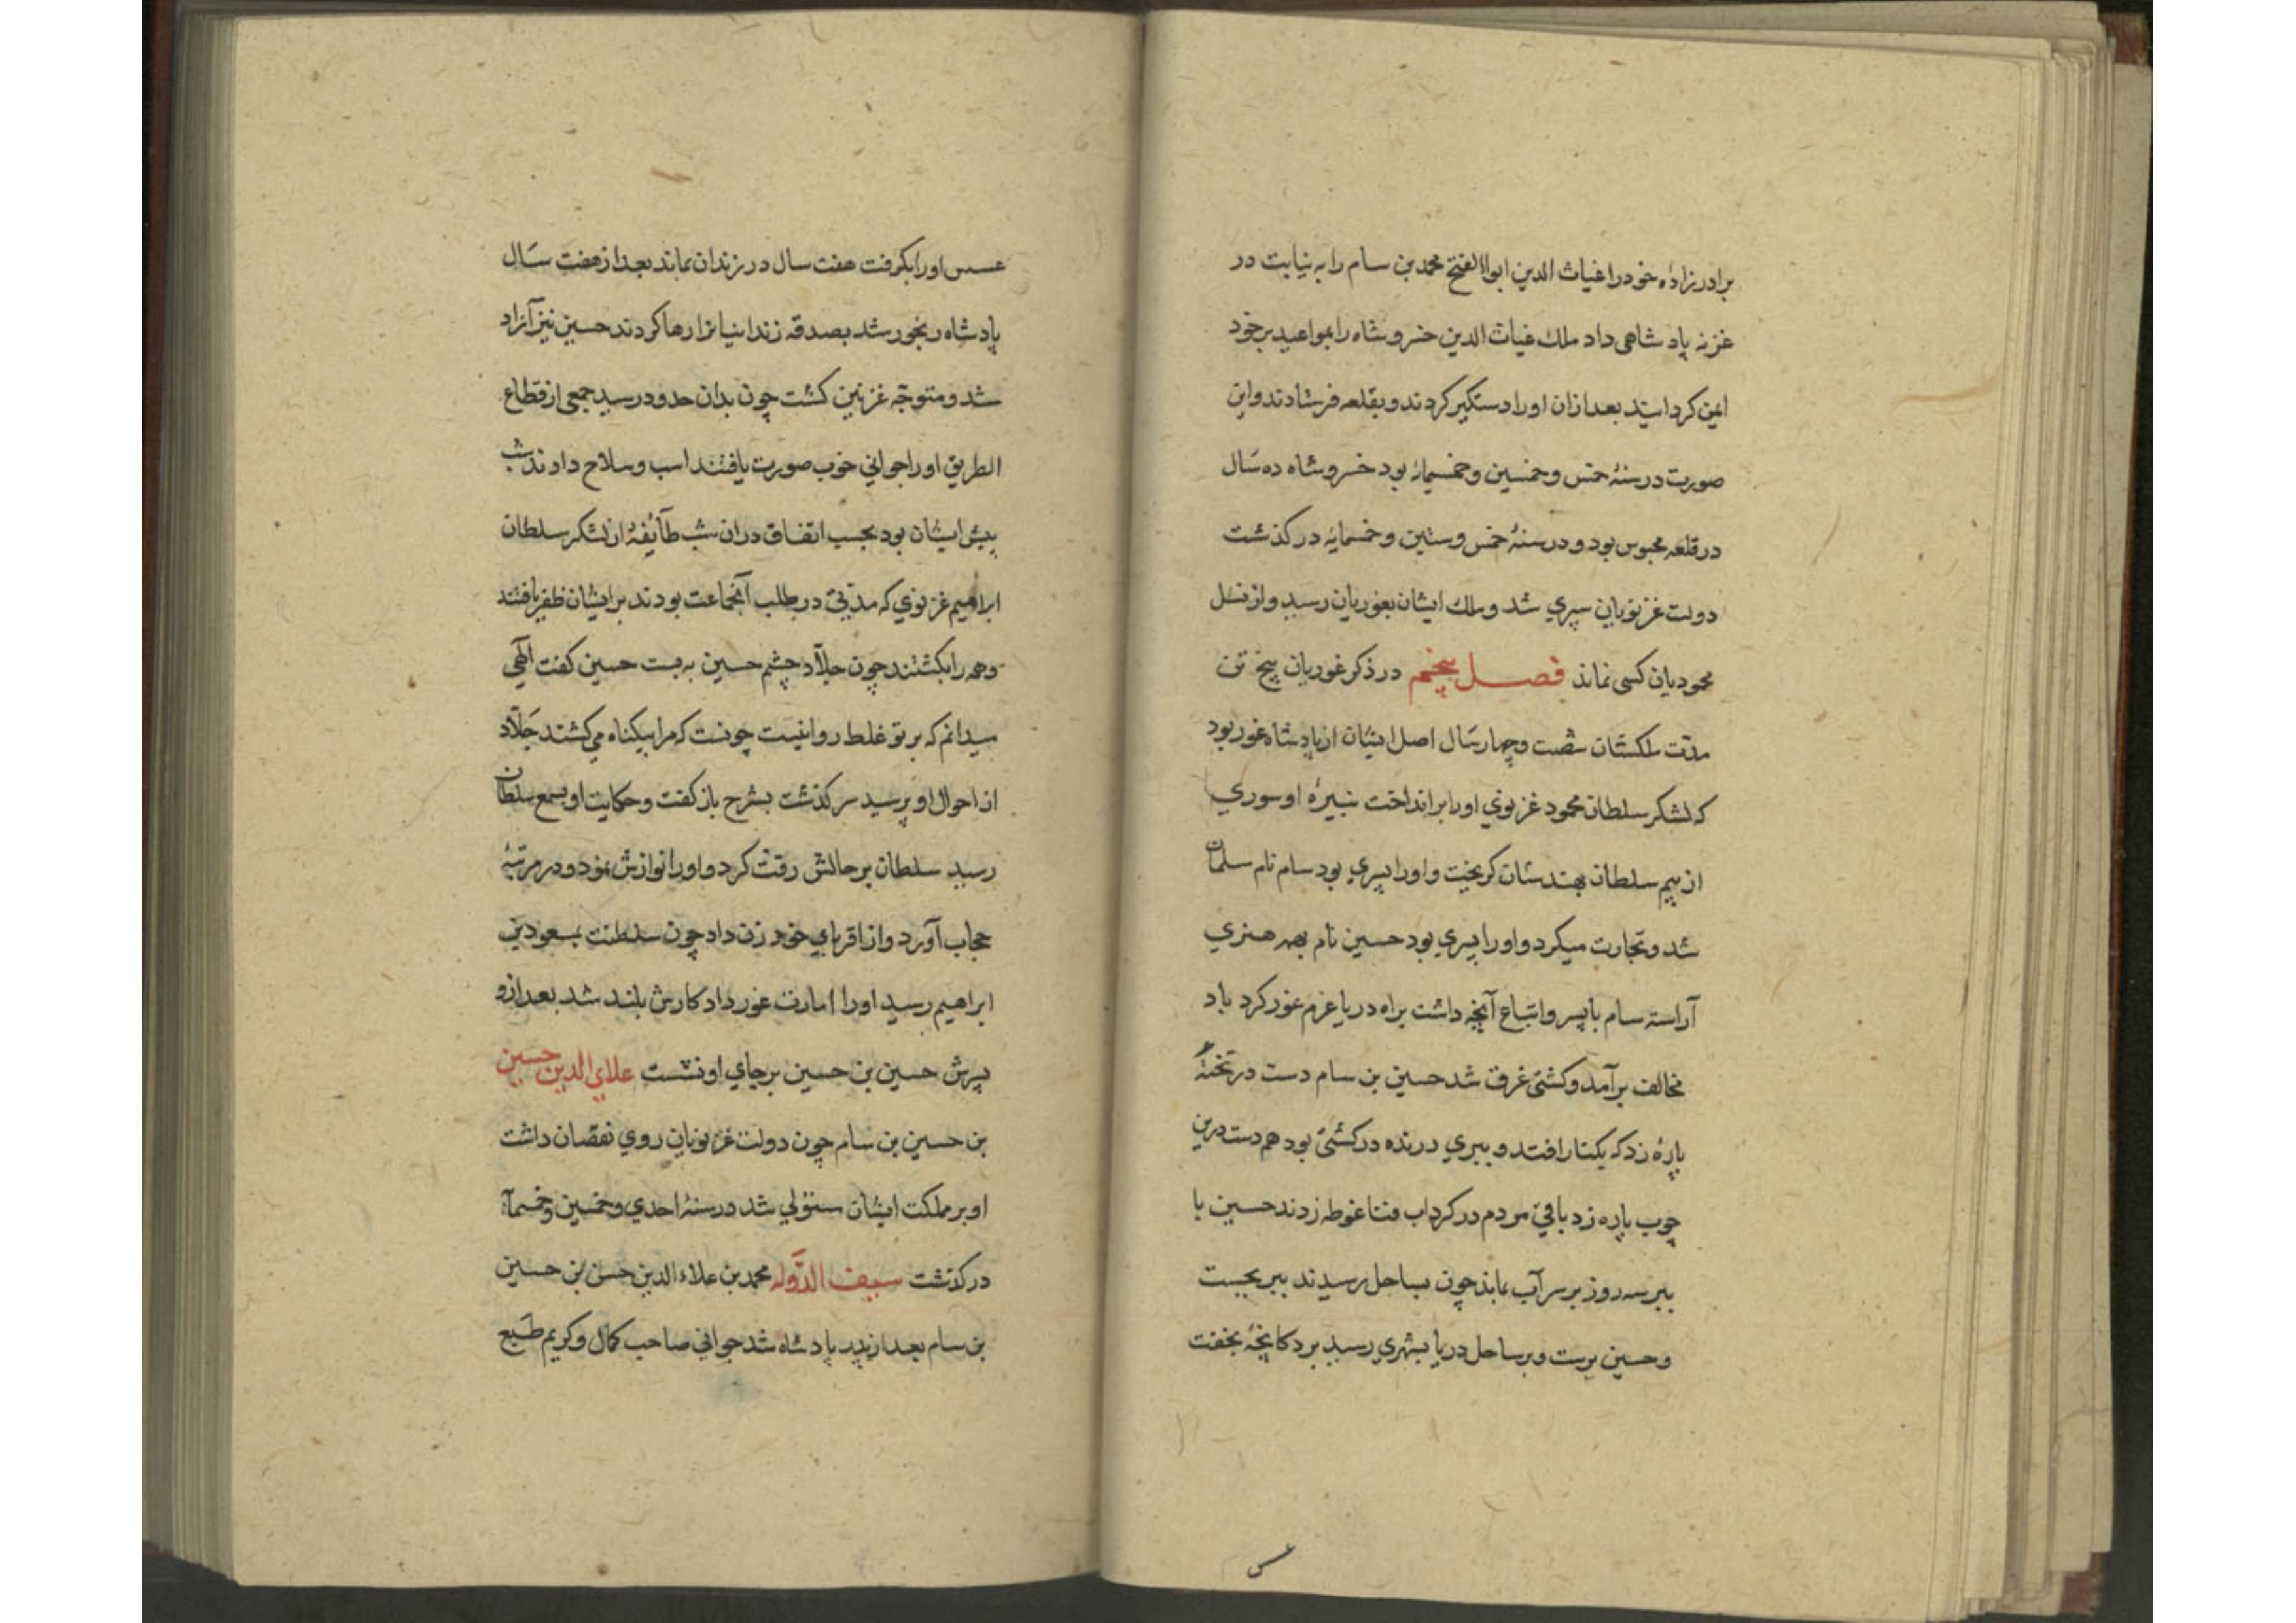 برادرزادهٔ خود را غیاث الدین ابوالفتح محمد بن سام را به نیابت در
غزنه پادشاهی داد ملک غیاث الدین خسروشاه را بمواعید برخود
ایمن کردانید بعد ازان اورا دستکیر کردند و بقلعه فرستادند واین
صورت در سنهٔ خمس وخمسین وخمسمایه بود خسروشاه ده سال
در قلعه محبوس بود و در سنهٔ خمس وستین وخمسمایه درکذشت
دولت غزنویان سپری شد وملک ایشان بغوریان رسید واز نسل
محمودیان کسی نماند فصل پنجم در ذکر غوریان پنج تن
مدّت ملکشان شصت وچهار سال اصل ایشان از پادشاه غور بود
که لشکر سلطان محمود غزنوی اورا برانداخت نبیرهٔ او سوری
از بیم سلطان بهندستان کریخت واورا پسری بود سام نام مسلمان
شد وتجارت میکرد واورا پسری بود حسین نام بهمه هنری
آراسته سام با پسر واتباع آنچه داشت براه دریا عزم غور کرد باد
مخالف برآمد وکشتی غرق شد حسین بن سام دست در تختهٔ
پارهٔ زد که بکنار افتد و ببری درنده درکشتی بود هم دست درین
چوب پاره زد باقی مردم درکرداب فنا غوطه زدند حسین با
ببر سه روز بر سر آب بماند چون بساحل رسیدند ببر بجست
وحسین برست و بر ساحل دریا بشهری رسید بر دکانچهٔ بخفت
عسس
عسس اورا بکرفت هفت سال در زندان بماند بعد از هفت سال
پادشاه رنجور شد بصدقه زندانیانرا رها کردند حسین نیز آزاد
شد ومتوجّه غزنین کشت چون بدان حدود رسید جمعی از قطاع
الطریق اورا جوانی خوب صورت یافتند اسب وسلاح دادند شب
پیش ایشان بود بحسب اتفاق دران شب طآئفهٔ از لشکر سلطان
ابراهیم غزنوی که مدتی در طلب آنجماعت بودند بر ایشان ظفر یافتند
وهمه را بکشتند چون جلّاد چشم حسین به بست حسین کفت الهی
میدانم که بر تو غلط روا نیست چونست که مرا بیکناه می کشند جلّاد
از احوال او پرسید سرکذشت بشرح بازکفت وحکایت او بسمع سلطان
رسید سلطان بر حالش رقت کرد و اورا نوازش نمود و در مرتبهٔ
حجاب آورد و از اقربای خود زن داد چون سلطنت بمسعود بن
ابراهیم رسید اورا امارت غور داد کارش بلند شد بعد ازو
پسرش حسین بن حسین بر جای او نشست علای الدین حسین
بن حسین بن سام چون دولت غزنویان روی نقصان داشت
او بر مملکت ایشان مستولی شد در سنهٔ احدی وخمسین وخمسمآیه
درکذشت سیف الدّوله محمد بن علاء الدین حسن بن حسین
بن سام بعد از پدر پادشاه شد جوانی صاحب کمال وکریم طبع